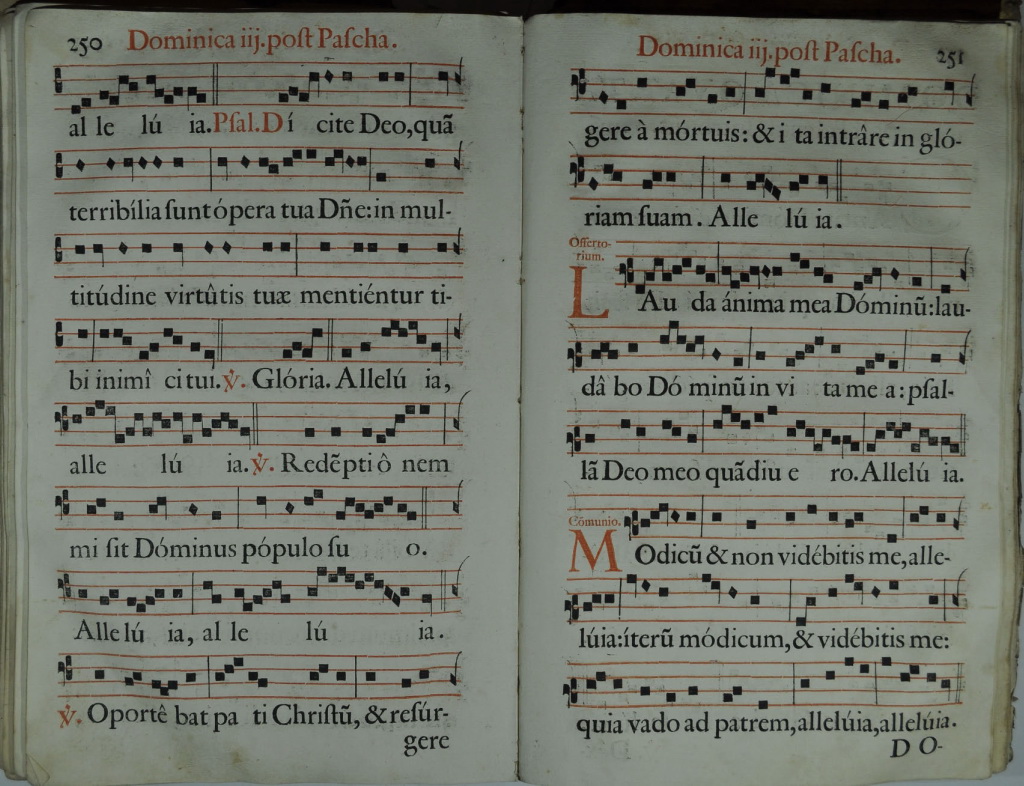 250 Dominica iij. poſt Paſcha.
al le lú ia. Pſal. Dí cite Deo, quã
terribília ſunt ópera tua Dñe: in mul-
titúdine virtûtis tuæ mentiéntur ti-
bi inimî ci tui. ℣. Glória. Allelú ia,
alle lú ia. ℣. Redẽpti ô nem
mi ſit Dóminus pópulo ſu o.
Alle lú ia, al le lú ia.
℣. Oportê bat pa ti Chriſtũ, & reſúr-
gere
Dominica iij. poſt Paſcha. 251
gere à mórtuis: & i ta intrâre in gló-
riam ſuam. Alle lú ia.
Offerto-
rium.
LAu da ánima mea Dóminũ: lau-
dâ bo Dó minũ in vi ta me a: pſal-
lã Deo meo quãdiu e ro. Allelú ia.
Cõmunio.
MOdicũ & non vidébitis me, alle-
lúia: íterũ módicum, & vidébitis me:
quia vado ad patrem, allelúia, allelúia.
D O-